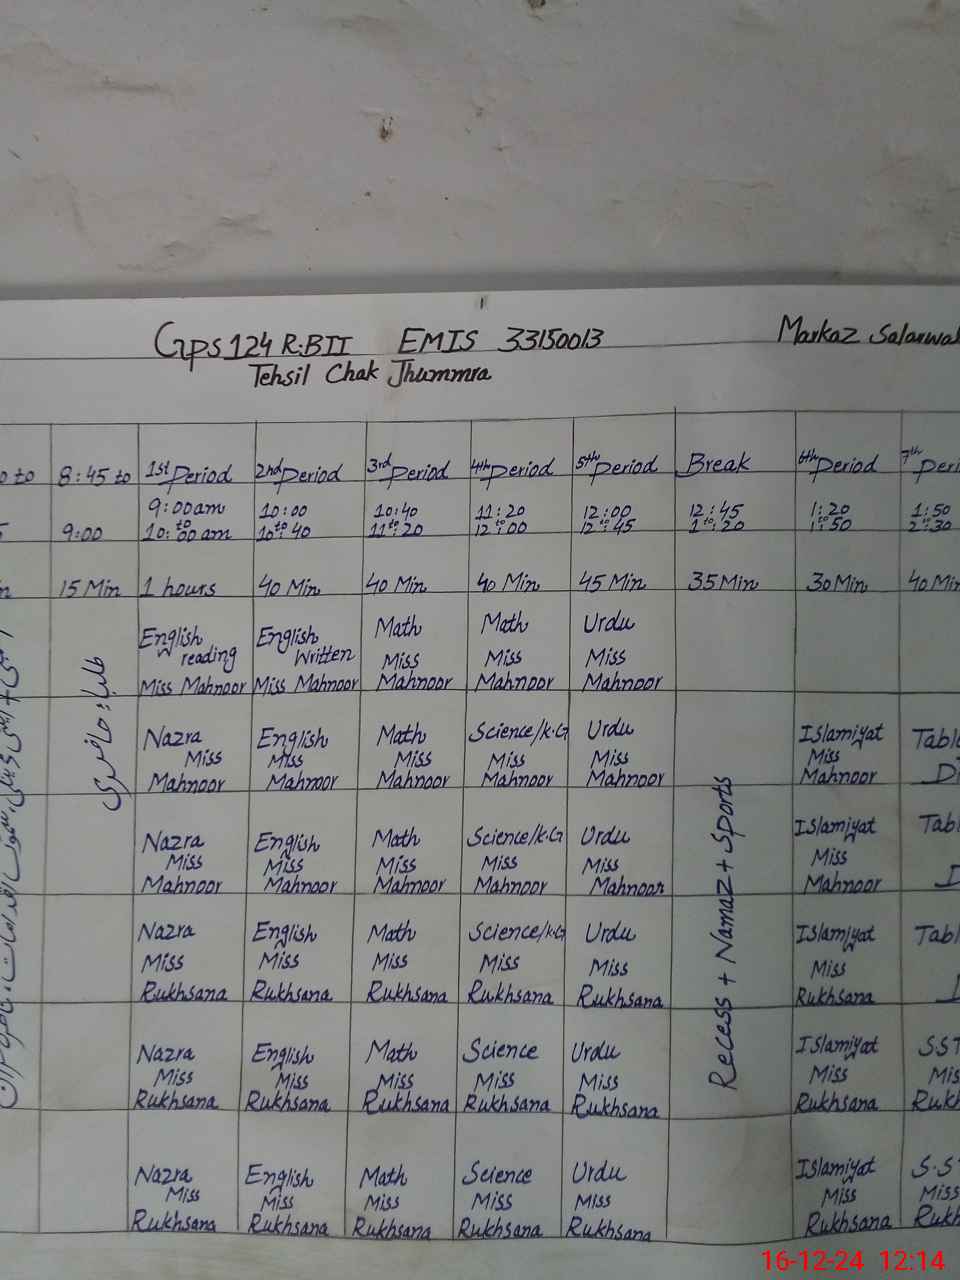 Gps 124 R.B II EMIS 33150013 Markaz Salarwal
Tehsil Chak Jhummra
to 8:45 to 1st Period 2nd Period 3rd Period 4th Period 5th Period Break 6th Period 7th Peri
9:00 9:00am to 10:00am 10:00 to 10:40 10:40 to 11:20 11:20 to 12:00 12:00 to 12:45 12:45 to 1:20 1:20 to 1:50 1:50 to 2:30
15 Min 1 hours 40 Min 40 Min 40 Min 45 Min 35 Min 30 Min 40 Min
English reading English Written Math Math Urdu
Miss Miss Miss
Miss Mahnoor Miss Mahnoor Mahnoor Mahnoor Mahnoor
طلباء حاضری
Nazra English Math Science/k.G Urdu Islamiyat Tabl
Miss Miss Miss Miss Miss Miss
Mahnoor Mahnoor Mahnoor Mahnoor Mahnoor Mahnoor
Nazra English Math Science/k.G Urdu Islamiyat Tabl
Miss Miss Miss Miss Miss Miss
Mahnoor Mahnoor Mahnoor Mahnoor Mahnoor Mahnoor
Recess + Namaz + Sports
Nazra English Math Science/k.G Urdu Islamiyat Tabl
Miss Miss Miss Miss Miss Miss
Rukhsana Rukhsana Rukhsana Rukhsana Rukhsana Rukhsana
Nazra English Math Science Urdu Islamiyat SST
Miss Miss Miss Miss Miss Miss Mis
Rukhsana Rukhsana Rukhsana Rukhsana Rukhsana Rukhsana Rukh
Nazra English Math Science Urdu Islamiyat S.S
Miss Miss Miss Miss Miss Miss Miss
Rukhsana Rukhsana Rukhsana Rukhsana Rukhsana Rukhsana Rukh
16-12-24 12:14